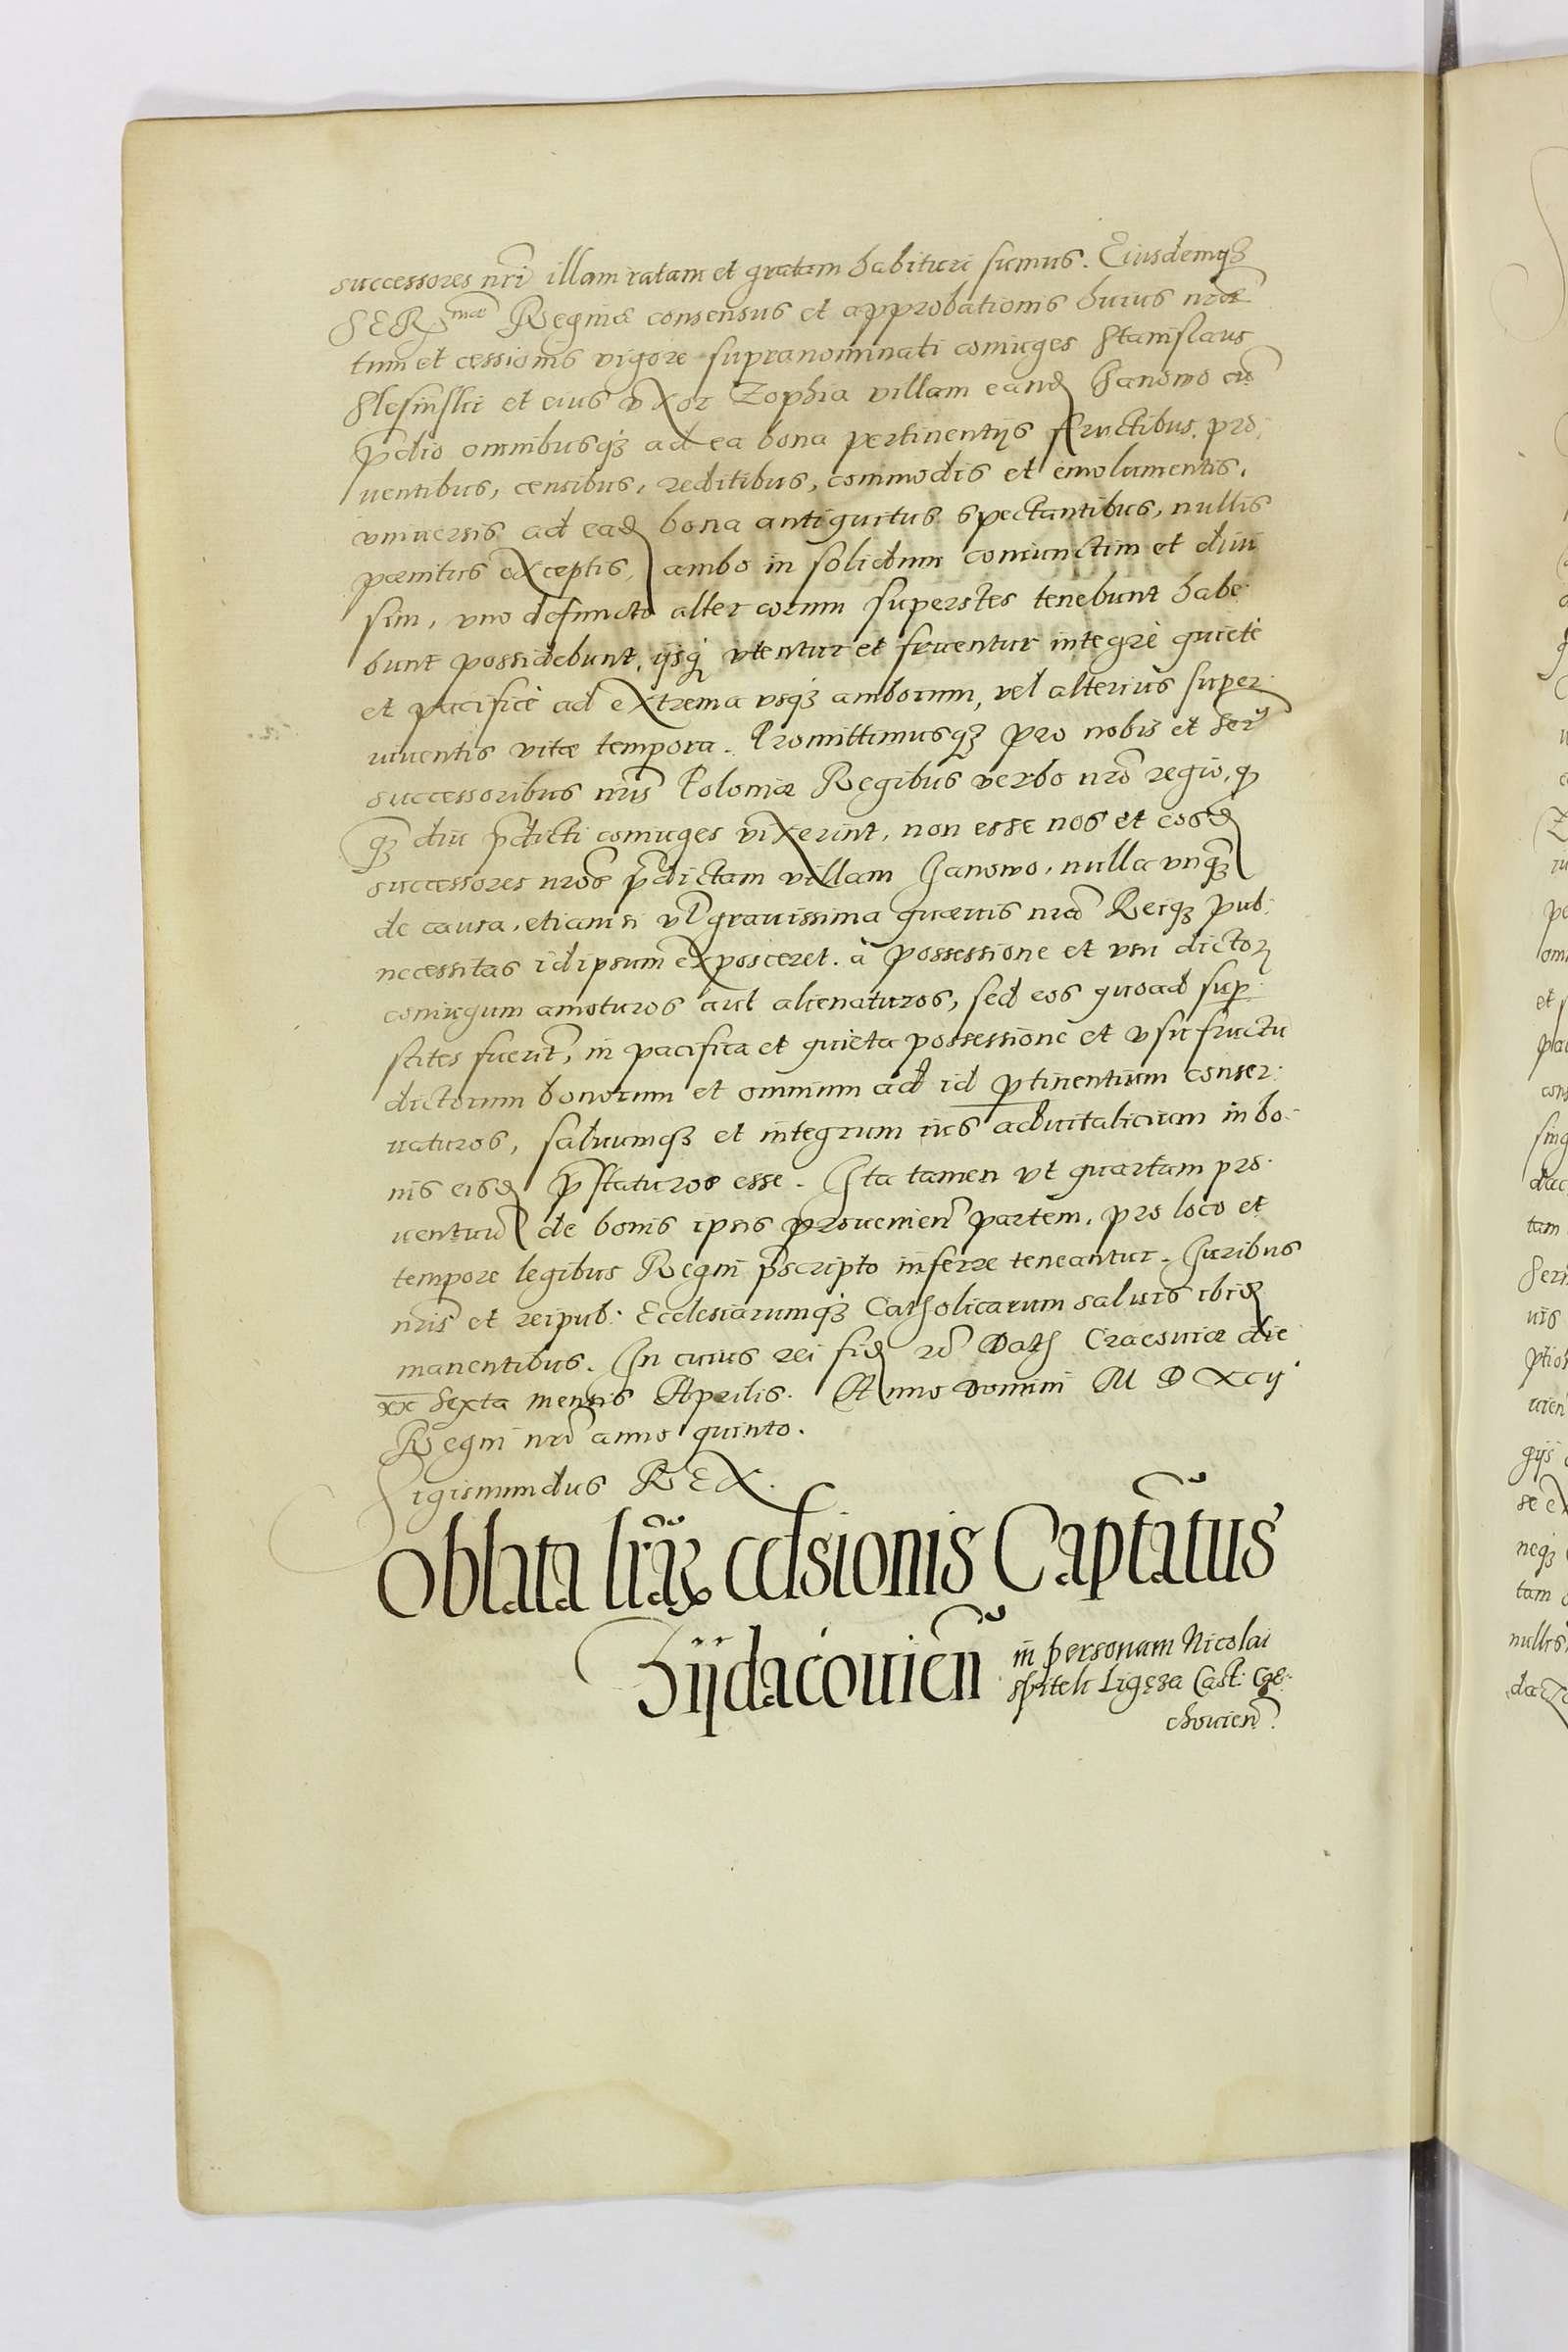 successores nri illam ratam et gratam habituri sumus. Eiusdemqȝ
SERmae Reginae consensus et approbationis huius nrae
tum et cessionis vigore supranominati coniuges Stanislaus
Slesinski et eius uxor Zophia villam eand Janowo cu
pdio omnibusqȝ ad ea bona pertinentijs fructibus, pro
uentibus, censibus, reditibus, commodis et emolumentis,
vniuersis ad ead bona antiquitus spectantibus, nullis
paenitus exceptis, ambo in solidum coniunctim et diui
sim, vno defuncto alter eorum superstes tenebunt habe
bunt possidebunt, ijsqȝ vtentur et fruentur integrè quietè
et pacificè ad extrema vsqȝ amborum, vel alterius super
uiuentis vitae tempora. Promittimusqȝ pro nobis et Ser
successoribus nris Poloniae Regibus verbo nro regio, qȝ
qȝ diu pdicti coniuges vixerint, non esse nos et eosd
successores nros pdictam villam Janowo, nulla vnqȝ
de causa, etiamsi vl grauissima quaeuis nra Reiqȝ pub:
necessitas idipsum exposceret. à possessione et vsu dictor
coniugum amoturos aut alienaturos, sed eos quoad sup
stites fuerint, in pacifica et quieta possessione et vsufructu
dictorum bonorum et omnium ad id ptinentium conser
uaturos, saluumqȝ et integrum ius aduitalicium in bo
nis eisd pstaturos esse. Ita tamen vt quartam pro
uentuu de bonis ipsis prouenien partem, pro loco et
tempore legibus Regni pscripto inferre teneantur. Juribus
nris et reipub: Ecclesiarumqȝ Catholicarum saluis ibid
manentibus. In cuius rei fid rc Dath Cracouiae die
xx Sexta mensis Aprilis. Anno Domini M D XCij
Regni nri anno quinto.
Sigismundus REX.
Oblata lrar cessionis Captatus
Zijdacouien
in personam Nicolai
Spitek Ligęza Cast: Cze
chouien.